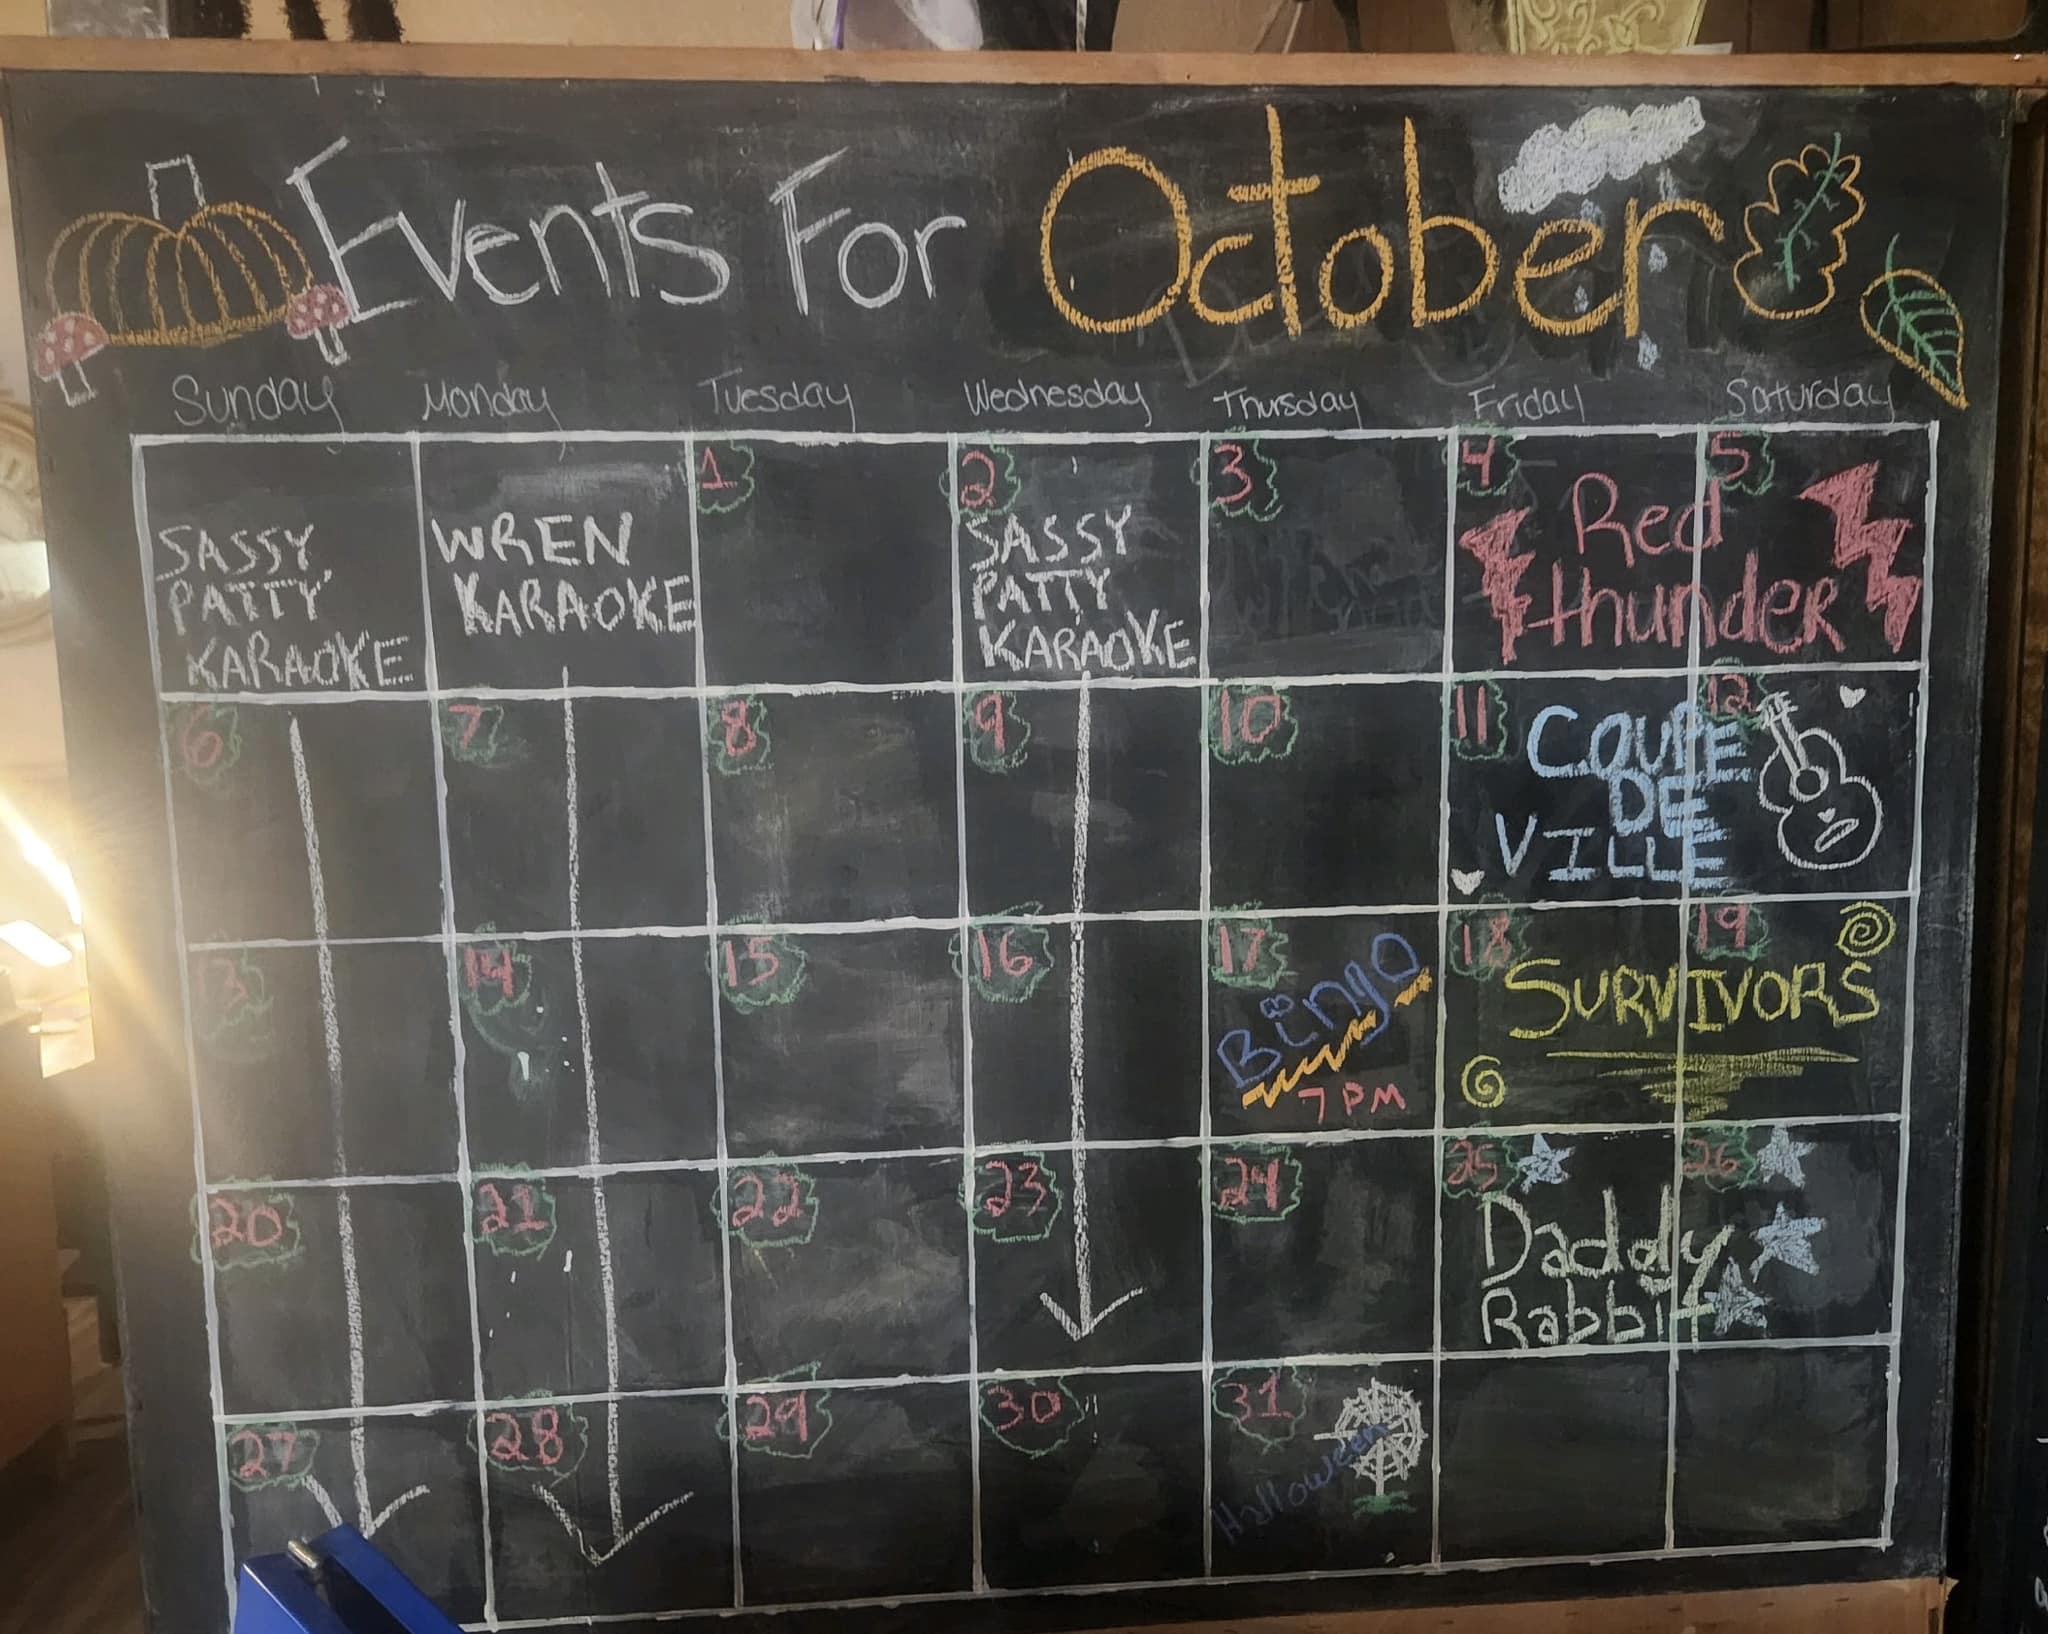 Events For October
Sunday Monday Tuesday Wednesday Thursday Friday Saturday
1 2 3 4 5
SASSY
PATTY
KARAOKE
WREN
KARAOKE
SASSY
PATTY
KARAOKE
Red
thunder
6 7 8 9 10 11 12
COUPE
DE
VILLE
13 14 15 16 17 18 19
Bingo
7 PM
SURVIVORS
20 21 22 23 24 25 26
Daddy
Rabbit
27 28 29 30 31
Halloween